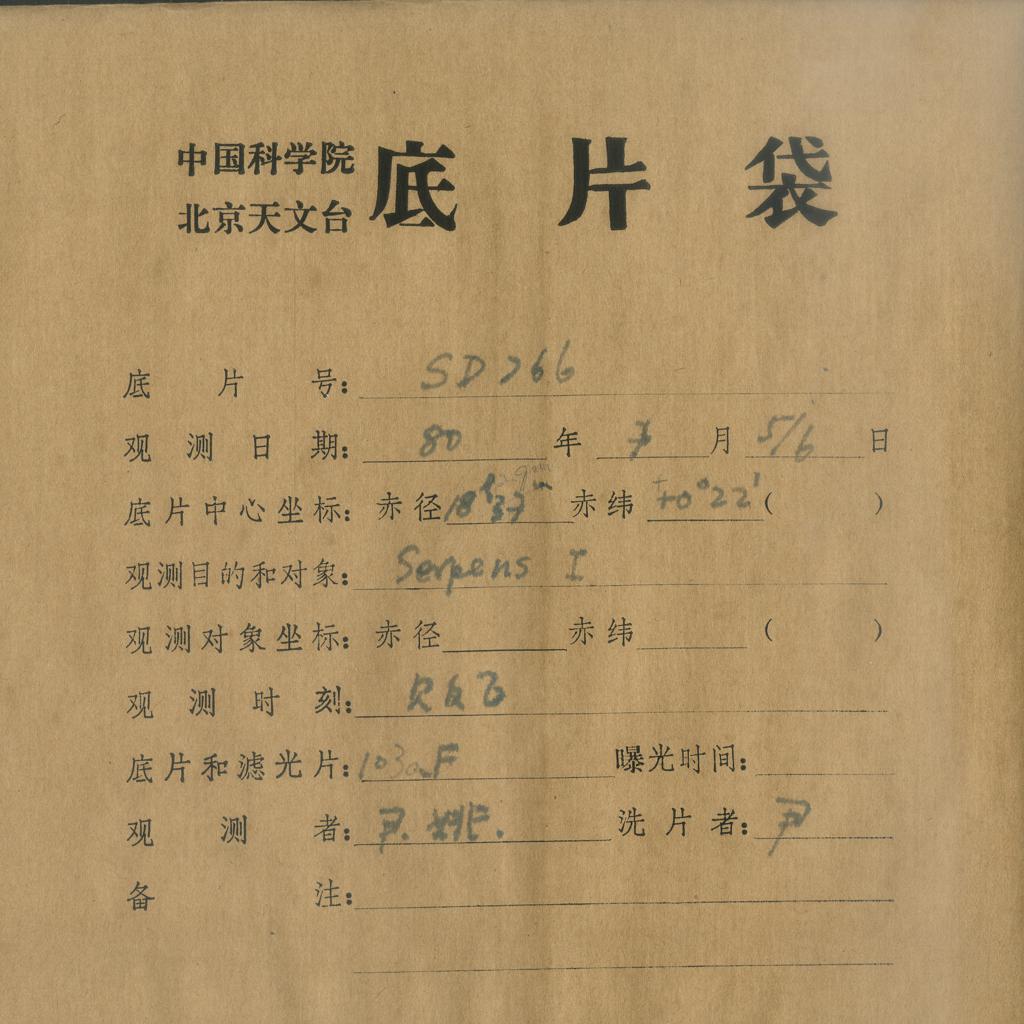 中国科学院
北京天文台
底片袋
底片号： SD 266
观测日期： 80 年 7 月 5/6 日
底片中心坐标： 赤径 18ʰ37ᵐ 赤纬 +0°22′ ( )
观测目的和对象： Serpens I
观测对象坐标： 赤径 赤纬 ( )
观测时刻：
底片和滤光片： 103aF 曝光时间：
观测者： 尹. 姚. 洗片者： 尹
备注：